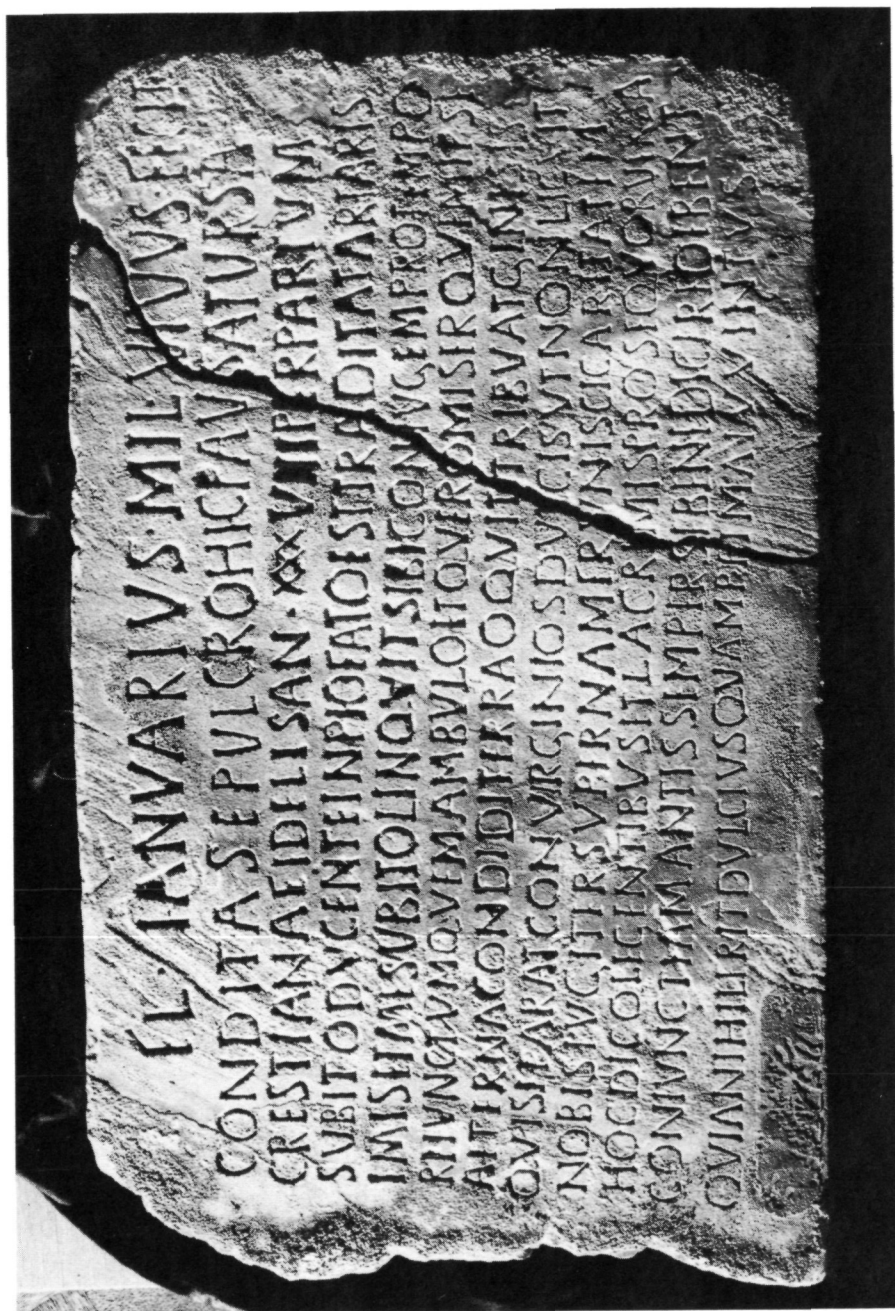 FL · IANVARIVS · MIL · VIVVS · FECIT
CONDITA SEPVLCRO HIC PAVSAT VRSA
CRESTIANA FIDELIS AN · XXXVIII PER PARTVM
SVBITO DVCENTE INPIO FATO EST TRADITA TARTARIS
IMIS ET ME SVBITO LINQVIT SIBI CONIVGEM PRO TEMPO
RE IVNCTVM QVEM AMBVLO ET QVERO MISER QVEM IPSE
AETERNA CONDIDI TERRA O QVIT TRIBVAT GENESIS
QVI SEPARAT CONVIRGINIOS DVLCIS VT NON LICVIT
NOBIS IVGITER FRVNISCI CARITATEM
HOC DICO LEGENTIBVS ET LACRIMIS PROSEQVOR VERBA
CONIVNCTI AMANTES SEMPER SE BENE DICERE DEBENT
QVIA NIHIL ERIT DVLCIVS QVAM PRIMA IVVENTVS